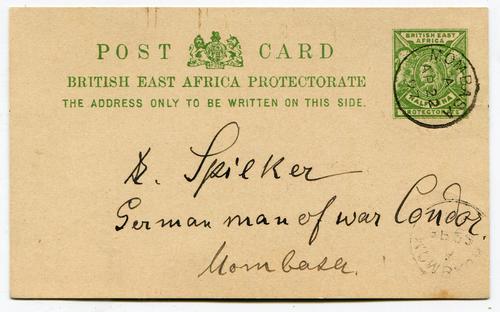 POST CARD
BRITISH EAST AFRICA PROTECTORATE
THE ADDRESS ONLY TO BE WRITTEN ON THIS SIDE.
BRITISH EAST
AFRICA
HALF ANNA
PROTECTORATE
MOMBASA
A
AP 2
Spilker
German man of war Condor.
Mombasa.